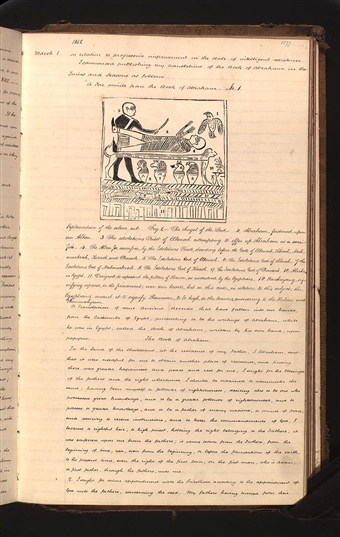 1842
1177
March 1
in relation to progressive improvement in the scale of intelligent existence
Commenced publishing my translations of the Book of Abraham in the
Times and Seasons as follows
A Fac simile from the Book of Abraham. No. 1
Explanation of the above cut Fig 1. The Angel of the Lord. 2 Abraham, fastened upon
an Altar. 3 The idolatrous Priest of Elkenah attempting to offer up Abraham as a sacri-
fice. 4. The Altar for sacrifice, by the idolatrous Priests, standing before the Gods of Elkenah, Libnah, Mah-
mackrah, Korash and Pharaoh. 5 The idolatrous God of Elkenah. 6 The Idolatrous God of Libnah. 7 The
Idolatrous God of Mahmackrah. 8 The Idolatrous God of Korash. 9 The Idolatrous God of Pharaoh. 10. Abraham
in Egypt. 11 Designed to represent the pillars of Heaven, as understood by the Egyptians. 12 Raukeeyang, sig-
nifying expanse, or the firmament, over our heads, but in this case, in relation to this subject, the
Egyptians meant it to signify Shaumau, to be high, or the heavens, answering to the Hebrew word
Shaumahyeem.
A Translation of some Ancient Records that have fallen into our hands,
from the Catacombs of Egypt, purporting to be the writings of Abraham, while
he was in Egypt, called the Book of Abraham, written by his own hand, upon
papyrus.
The Book of Abraham
In the land of the Chaldeans, at the residence of my Father, I Abraham, saw
that it was needful for me to obtain another place of residence, and finding
there was greater happiness and peace and rest for me, I sought for the blessings
of the fathers and the right whereunto I should be ordained to administer the
same; having been myself a follower of righteousness, desiring also to be one who
possessed great knowledge, and to be a greater follower of righteousness, and to
possess a greater knowledge, and to be a father of many nations, a prince of peace,
and desiring to receive instructions, and to keep the commandments of God, I
became a rightful heir, a high priest, holding the right belonging to the Fathers, it
was conferred upon me from the fathers; it came down from the Fathers from the
beginning of time, yea, even from the beginning, or before the foundations of the earth,
to the present time, even the right of the first born, on the first man, who is Adam,
or first father, through the fathers, unto me.
2. I sought for mine appointment unto the Priesthood according to the appointment of
God unto the fathers, concerning the seed. My fathers having turned from their